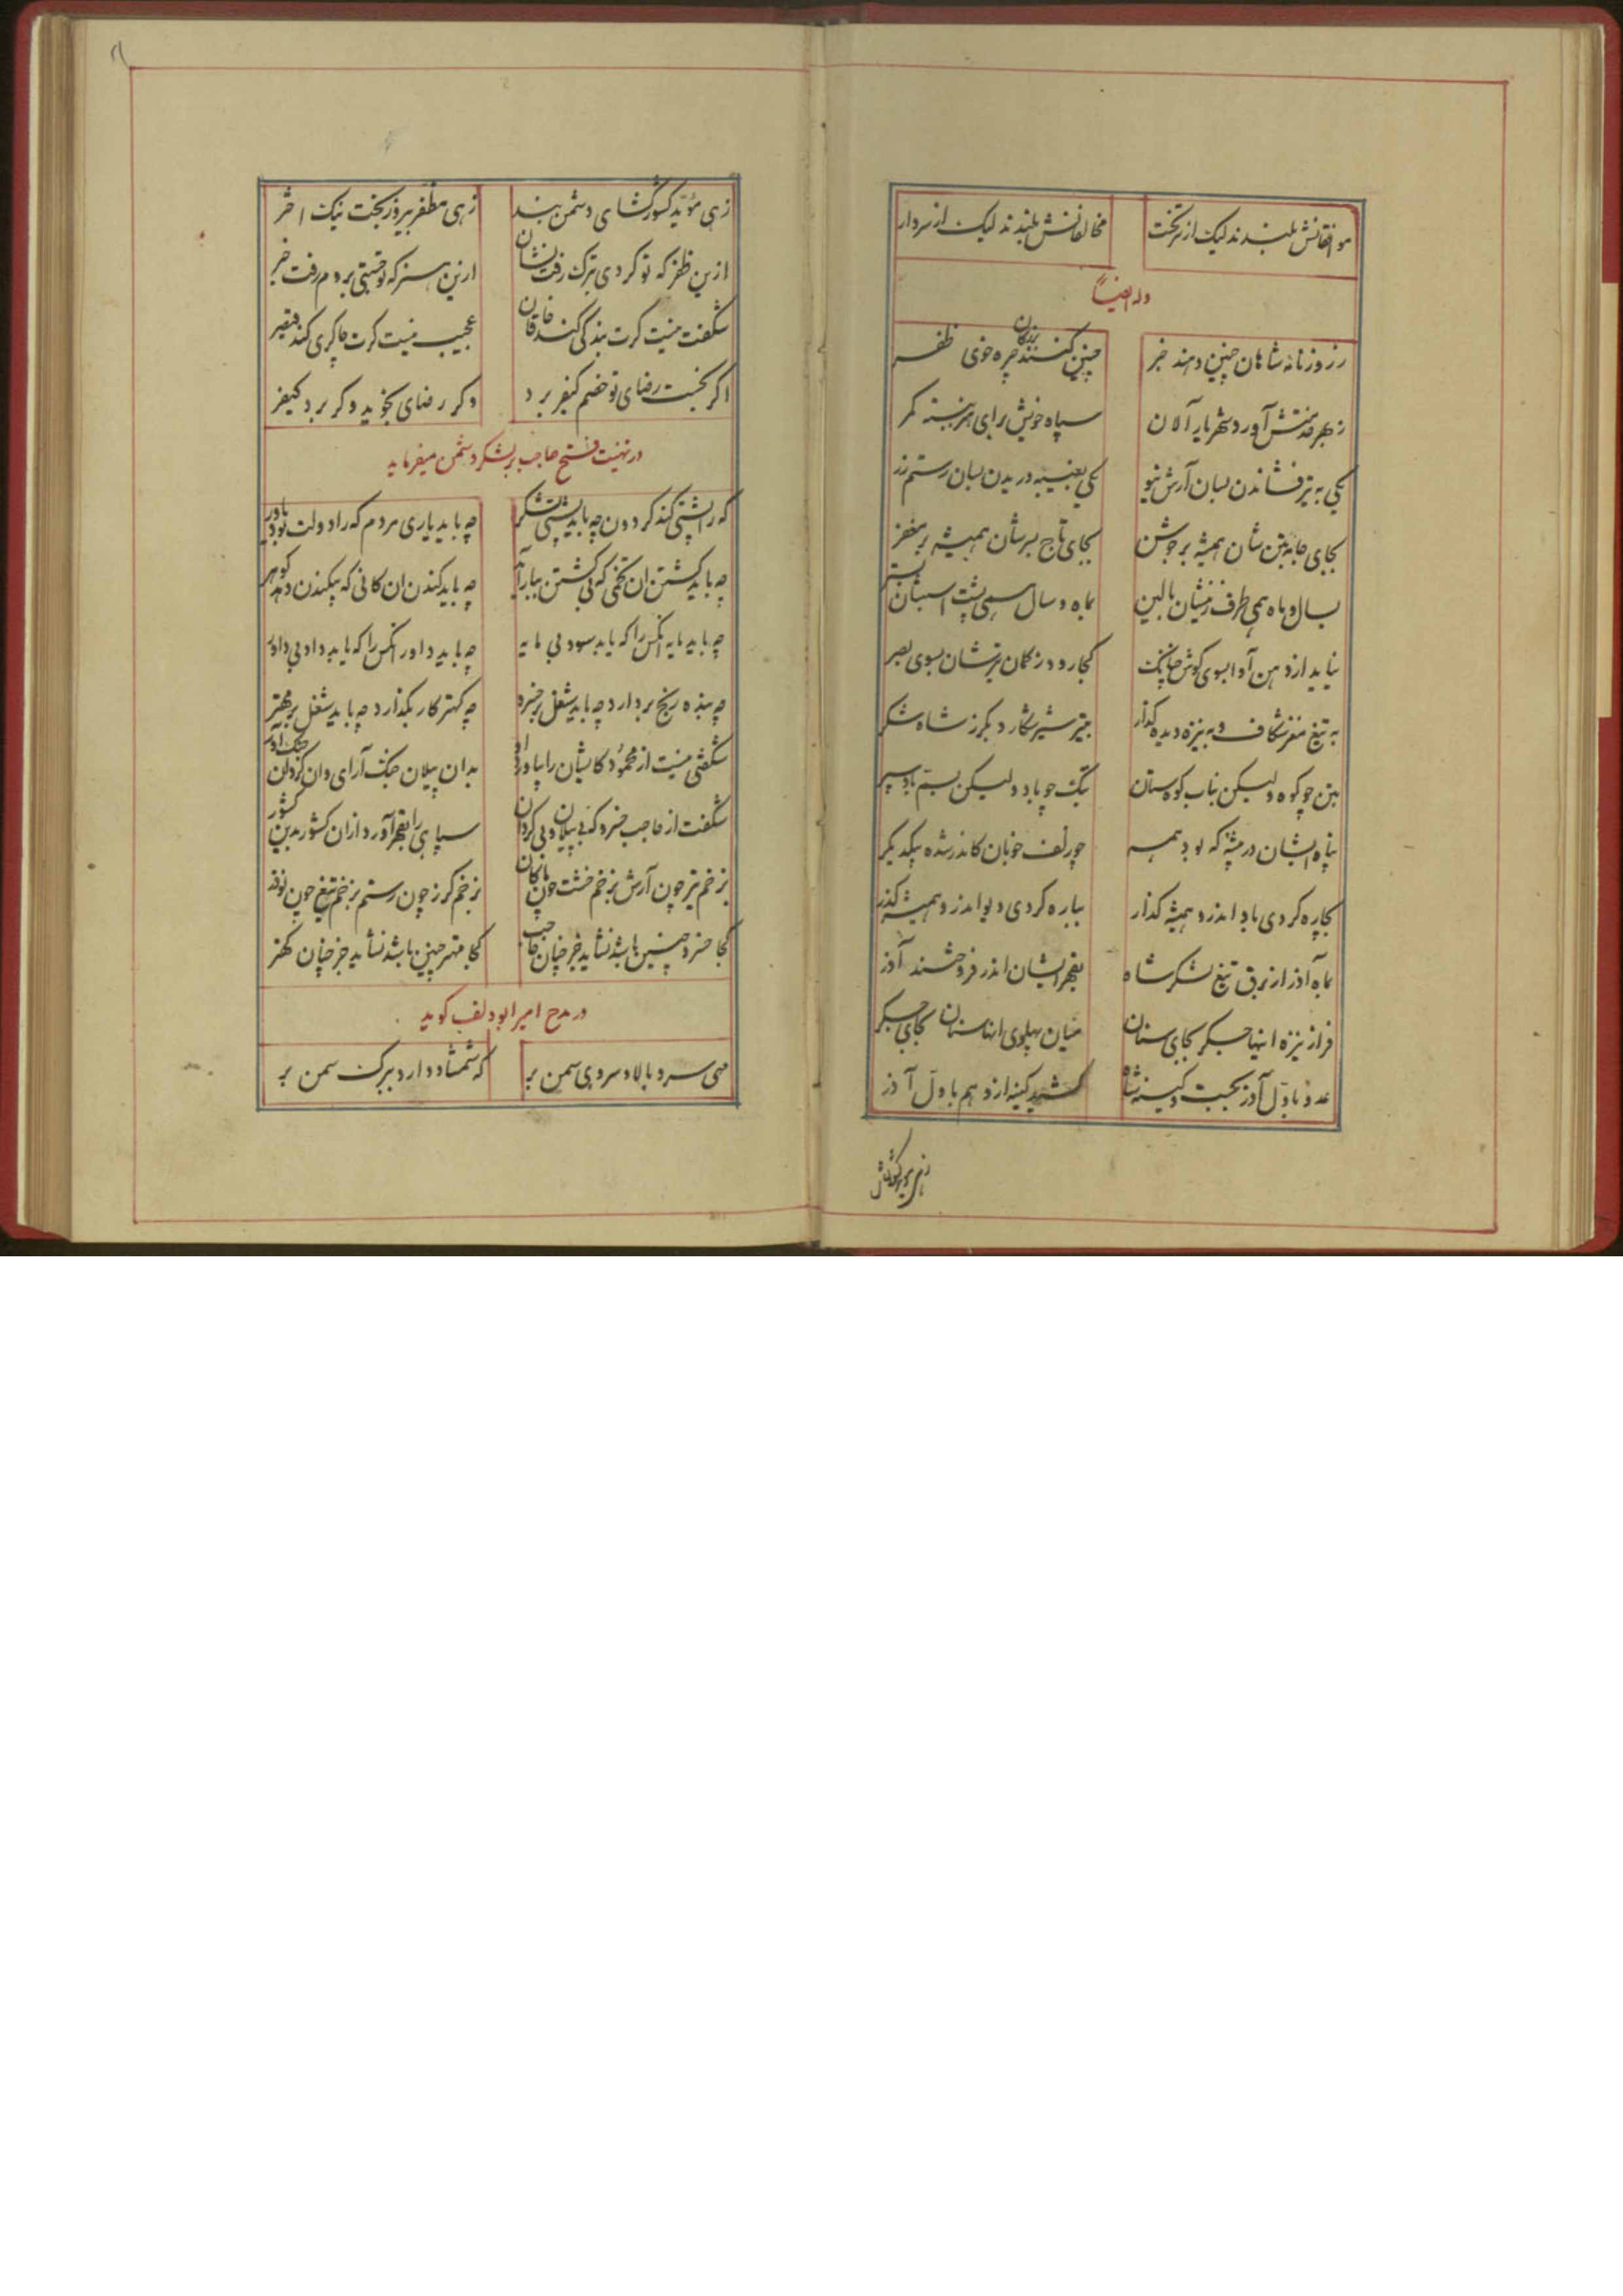 موافقانش بلندند لیک از بر تخت
مخالفانش بلندند لیک از سر دار
وله ایضاً
ز روزنامه شاهان چنین دهند خبر
چنین کنند بزرگان چو خوی ظفر
ز بهر خدمتش آورد شهریار آلان
سپاه خویش برای هنر ببسته کمر
یکی به تیر فشاندن بسان آرش نیو
یکی بغیبه دریدن بسان رستم زر
بجای جامه بتن شان همیشه بر جوشن
بجای تاج بسرشان همیشه بر مغفر
بسال و ماه همی طرف زینشان بالین
بماه و سال همی پشت اسبشان بستر
نیاید از دهن آوا بسوی گوش چنانک
کجا رود ز کمان تیرشان بسوی بصر
به تیغ مغز شکاف و به نیزه دیده گذار
بتیر شیر شکار و بگرز شاه شکر
بتن چو کوه ولیکن بتاب کوه ستان
بتک چو باد ولیکن بسم باد سپر
پناه ایشان در بیشهٔ که بود همه
چو زلف خوبان کاندر شده بیکدیگر
بچاره کردی باد اندرو همیشه گذار
بباره کردی دیو اندرو همیشه گذر
بماه آذر از برق تیغ لشکر شاه
بقهر ایشان اندر فروختند آذر
فراز نیزه اینها جگر بجای سنان
میان پهلوی آنها سنان بجای جگر
عدو باول آذر بجست و کینه شاه
کشید کینه ازو هم باول آذر
زهی موید کشورگشای دشمن بند
زهی مظفر پیروزبخت نیک اختر
ازین ظفر که تو کردی بترک رفت نشان
ازین هنر که تو جستی بروم رفت خبر
شگفت نیست گرت بندگی کند خاقان
عجیب نیست گرت چاکری کند قیصر
اگر بجست رضای تو خصم کیفر برد
وگر رضای بجوید وگر برد کیفر
در تهنیت فتح حاجب بر لشکر دشمن میفرماید
که را پشتی کند گردون چه باید پشتی لشکر
چه باید یاری مردم که را دولت بود یاور
چه باید کشتن ان تخمی که بی کشتن ببار آید
چه باید کندن ان کانی که بیکندن دهد گوهر
چه باید مایه انکس را که یابد سود بی مایه
چه باید داور انکس را که یابد داد بی داور
چه بنده رنج بردارد چه باید شغل بر خسرو
چه کهتر کار بگذارد چه باید شغل بر مهتر
شگفتی نیست از محمود کایشان را بپا آورد
بدان پیلان جنگ آرای و ان گردان جنگ آور
شگفت از حاجب خسرو که بی پیلان و بی گردان
سپاهی را بقهر آورد ازان کشور بدین کشور
بزخم تیر چون آرش بزخم خشت چون ماکان
بزخم گرز چون رستم بزخم تیغ چون نوذر
کجا خسرو چنین باشد نشاید جز چنان حاجب
کجا مهتر چنین باشد نشاید جز چنان کهتر
در مدح امیر ابودلف گوید
مهی سرو بالا و سروی سمن بر
که شمشاد دارد ببرگ سمن بر